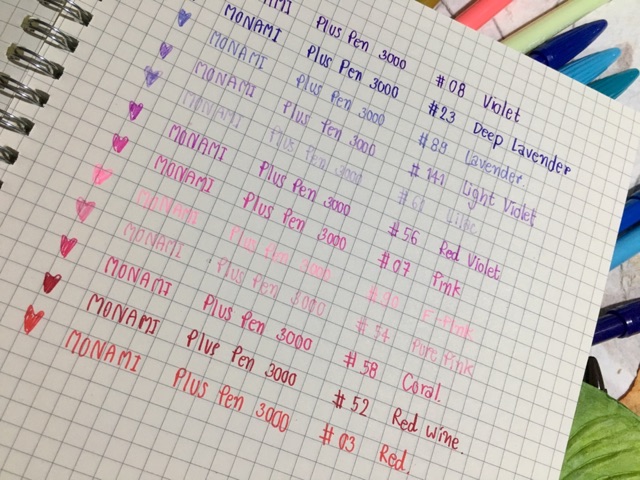 AMI Plus Pen 3000 #08 Violet
MONAMI Plus Pen 3000 #23 Deep Lavender
MONAMI Plus Pen 3000 #89 Lavender
MONAMI Plus Pen 3000 #141 Light Violet
MONAMI Plus Pen 3000 Lilac
MONAMI Plus Pen 3000 #56 Red Violet
MONAMI Plus Pen 3000 #07 Pink
MONAMI Plus Pen 3000 #90 F-Pink
MONAMI Plus Pen 3000 #54 Pure Pink
MONAMI Plus Pen 3000 #58 Coral.
MONAMI Plus Pen 3000 #52 Red Wine.
MONAMI Plus Pen 3000 #03 Red.